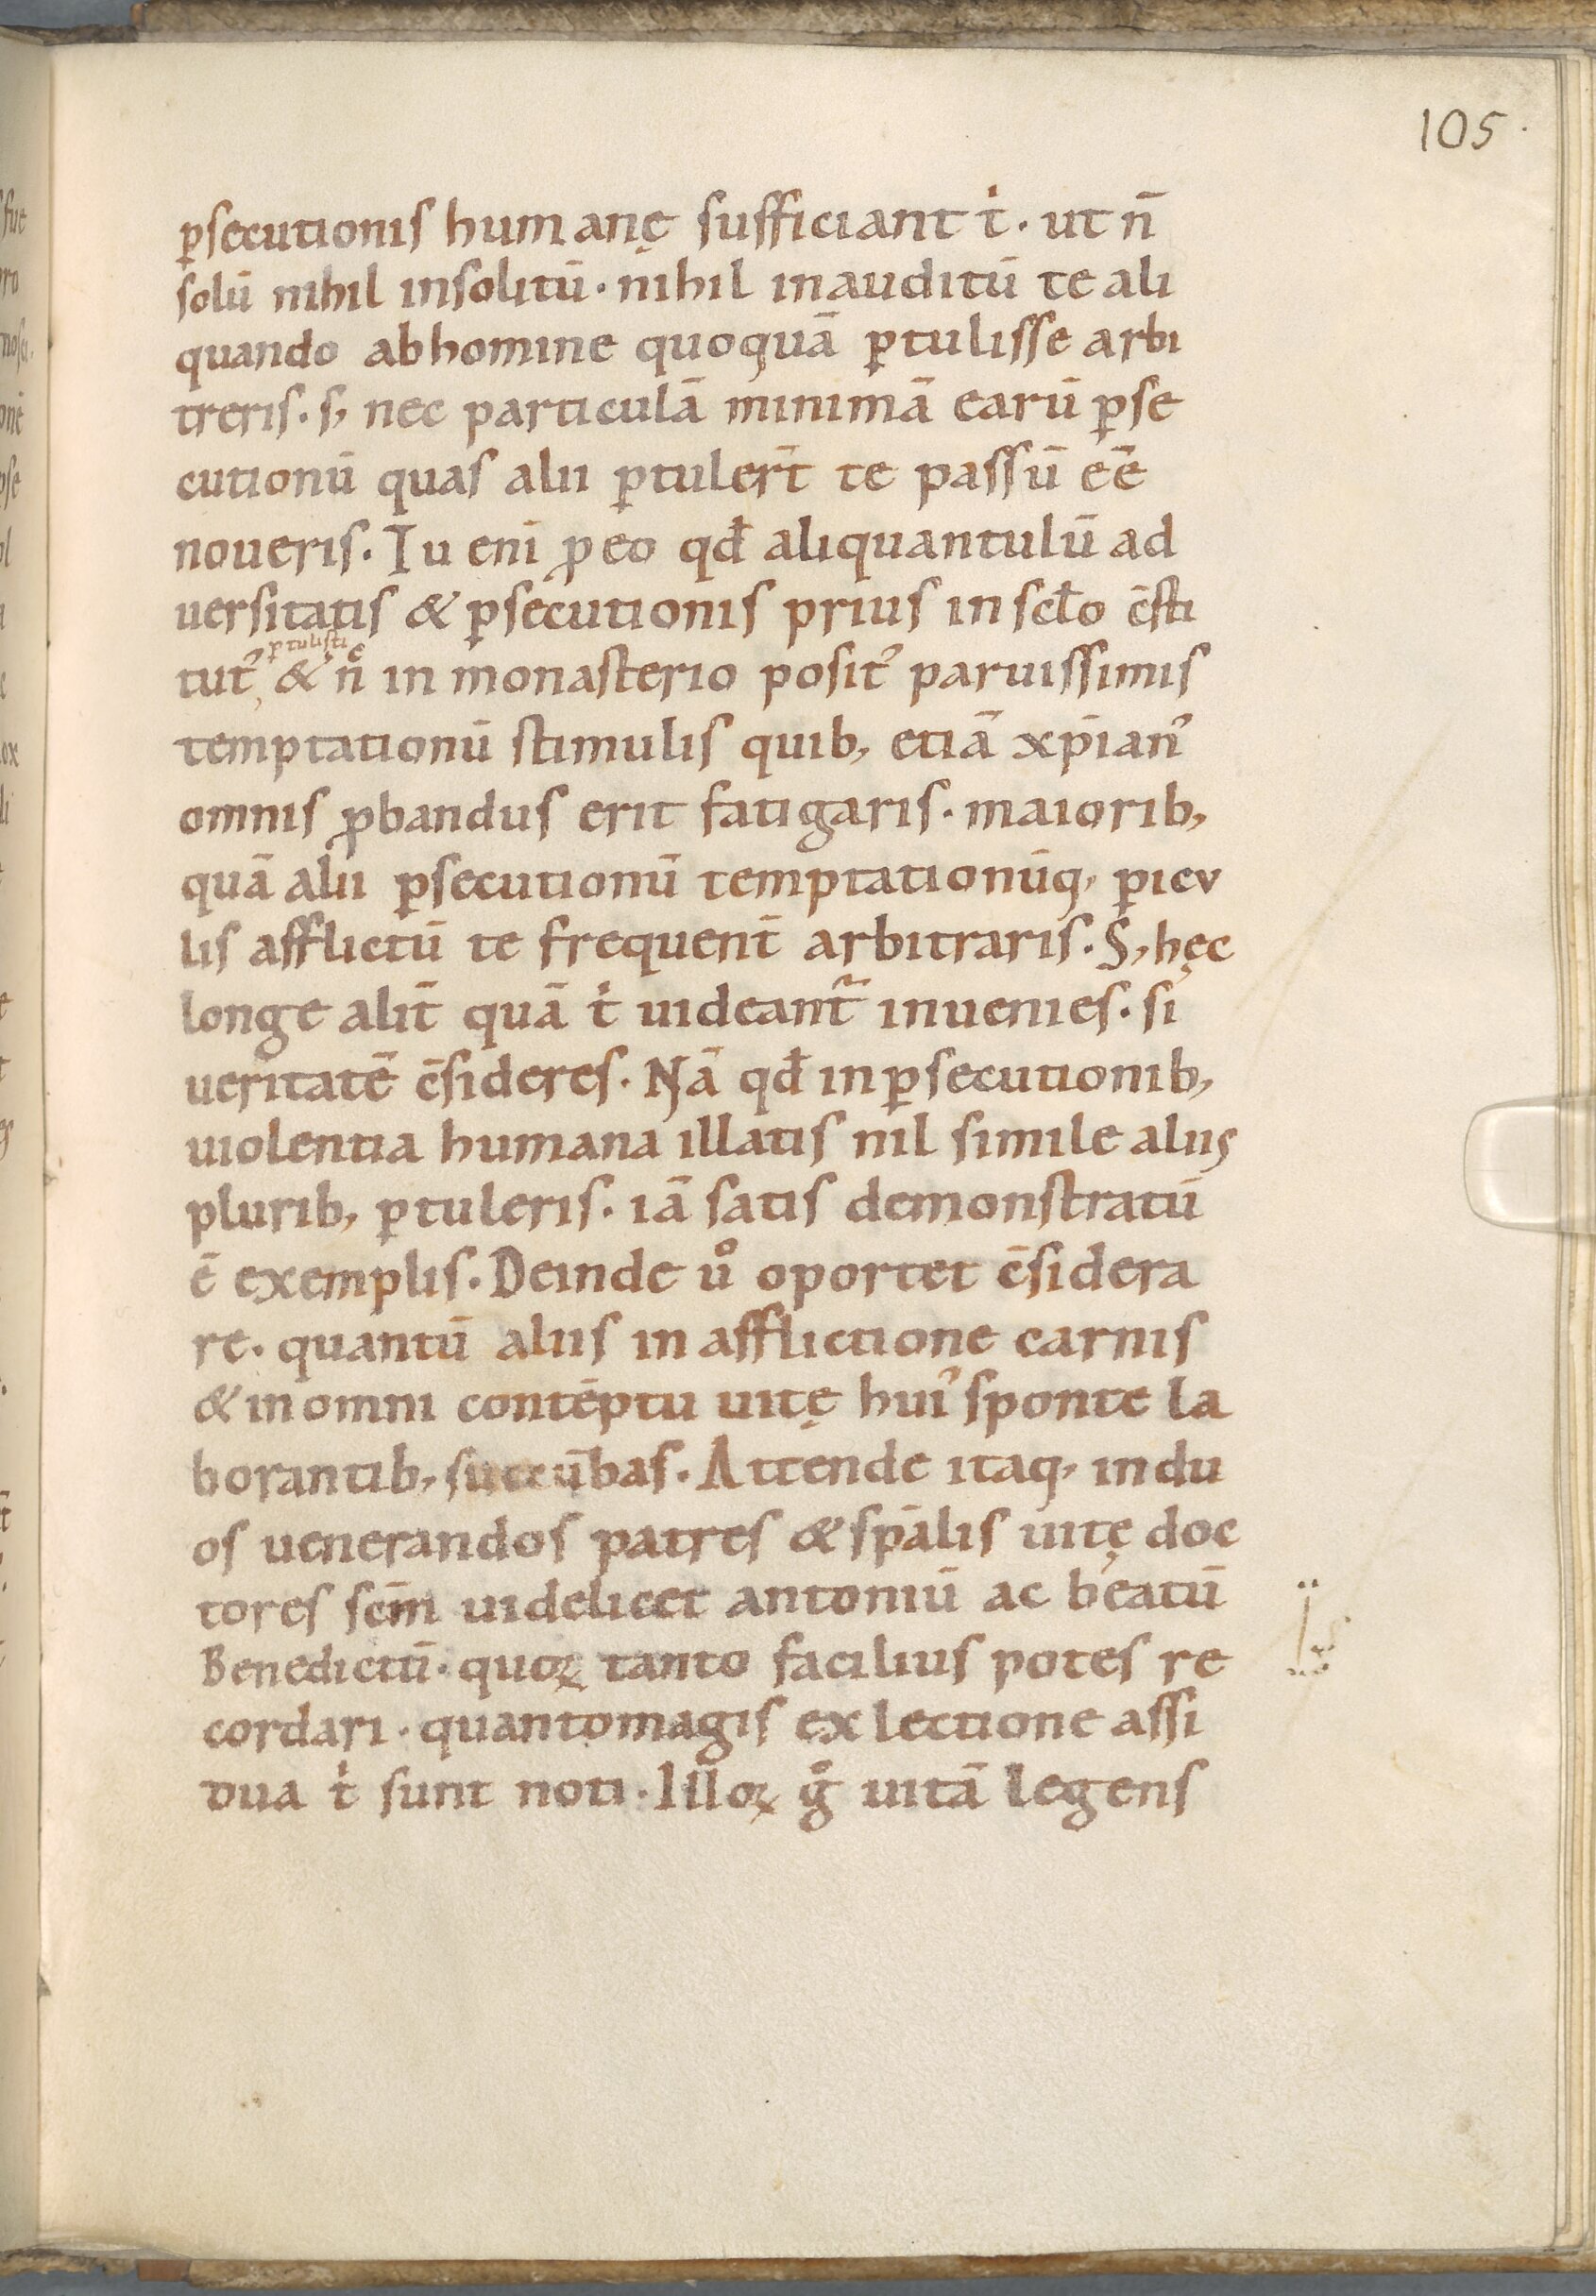 105
ꝑsecutionis humanę sufficiant t̍. ut n̄
solū nihil insolitū. nihil inauditū te ali
quando ab homine quoquā ꝑtulisse arbi
treris. s, nec particulā minimā earū ꝑse
cutionū quas alii ꝑtuler̄t te passū eē
noueris. Tu eni̅ ꝓ eo qđ aliquantulū ad
uersitatis & ꝑsecutionis prius in scƚo c̄sti
ꝑtulisti
tut᾿, & n̊c in monasterio posit᾿ paruissimis
temptationū stimulis quib, etiā xp̄ian᾿
omnis ꝓbandus erit fatigaris. maiorib,
quā alii ꝑsecutionū temptationūq, ꝑicu
lis afflictū te frequent̄ arbitraris. S, hęc
longe alit̄ quā t̍ uideant᷑ inuenies. si
ueritatē c̄sideres. Nā qđ in ꝑsecutionib,
uiolentia humana illatis nil simile aliis
plurib, ꝑtuleris. iā satis demonstratū
ē exemplis. Deinde ů oportet c̄sidera
re. quantū aliis in afflictione carnis
& in omni contēptu uitę hui᾿ sponte la
borantib, succūbas. Attende itaq, in du
os uenerandos patres & sp̄alis uitę doc
tores sc̄m uidelicet antoniū ac beatū
Benedictū. quoꝝ tanto facilius potes re
cordari. quanto magis ex lectione assi
dua t̍ sunt noti. Illoꝝ g̊ uitā legens